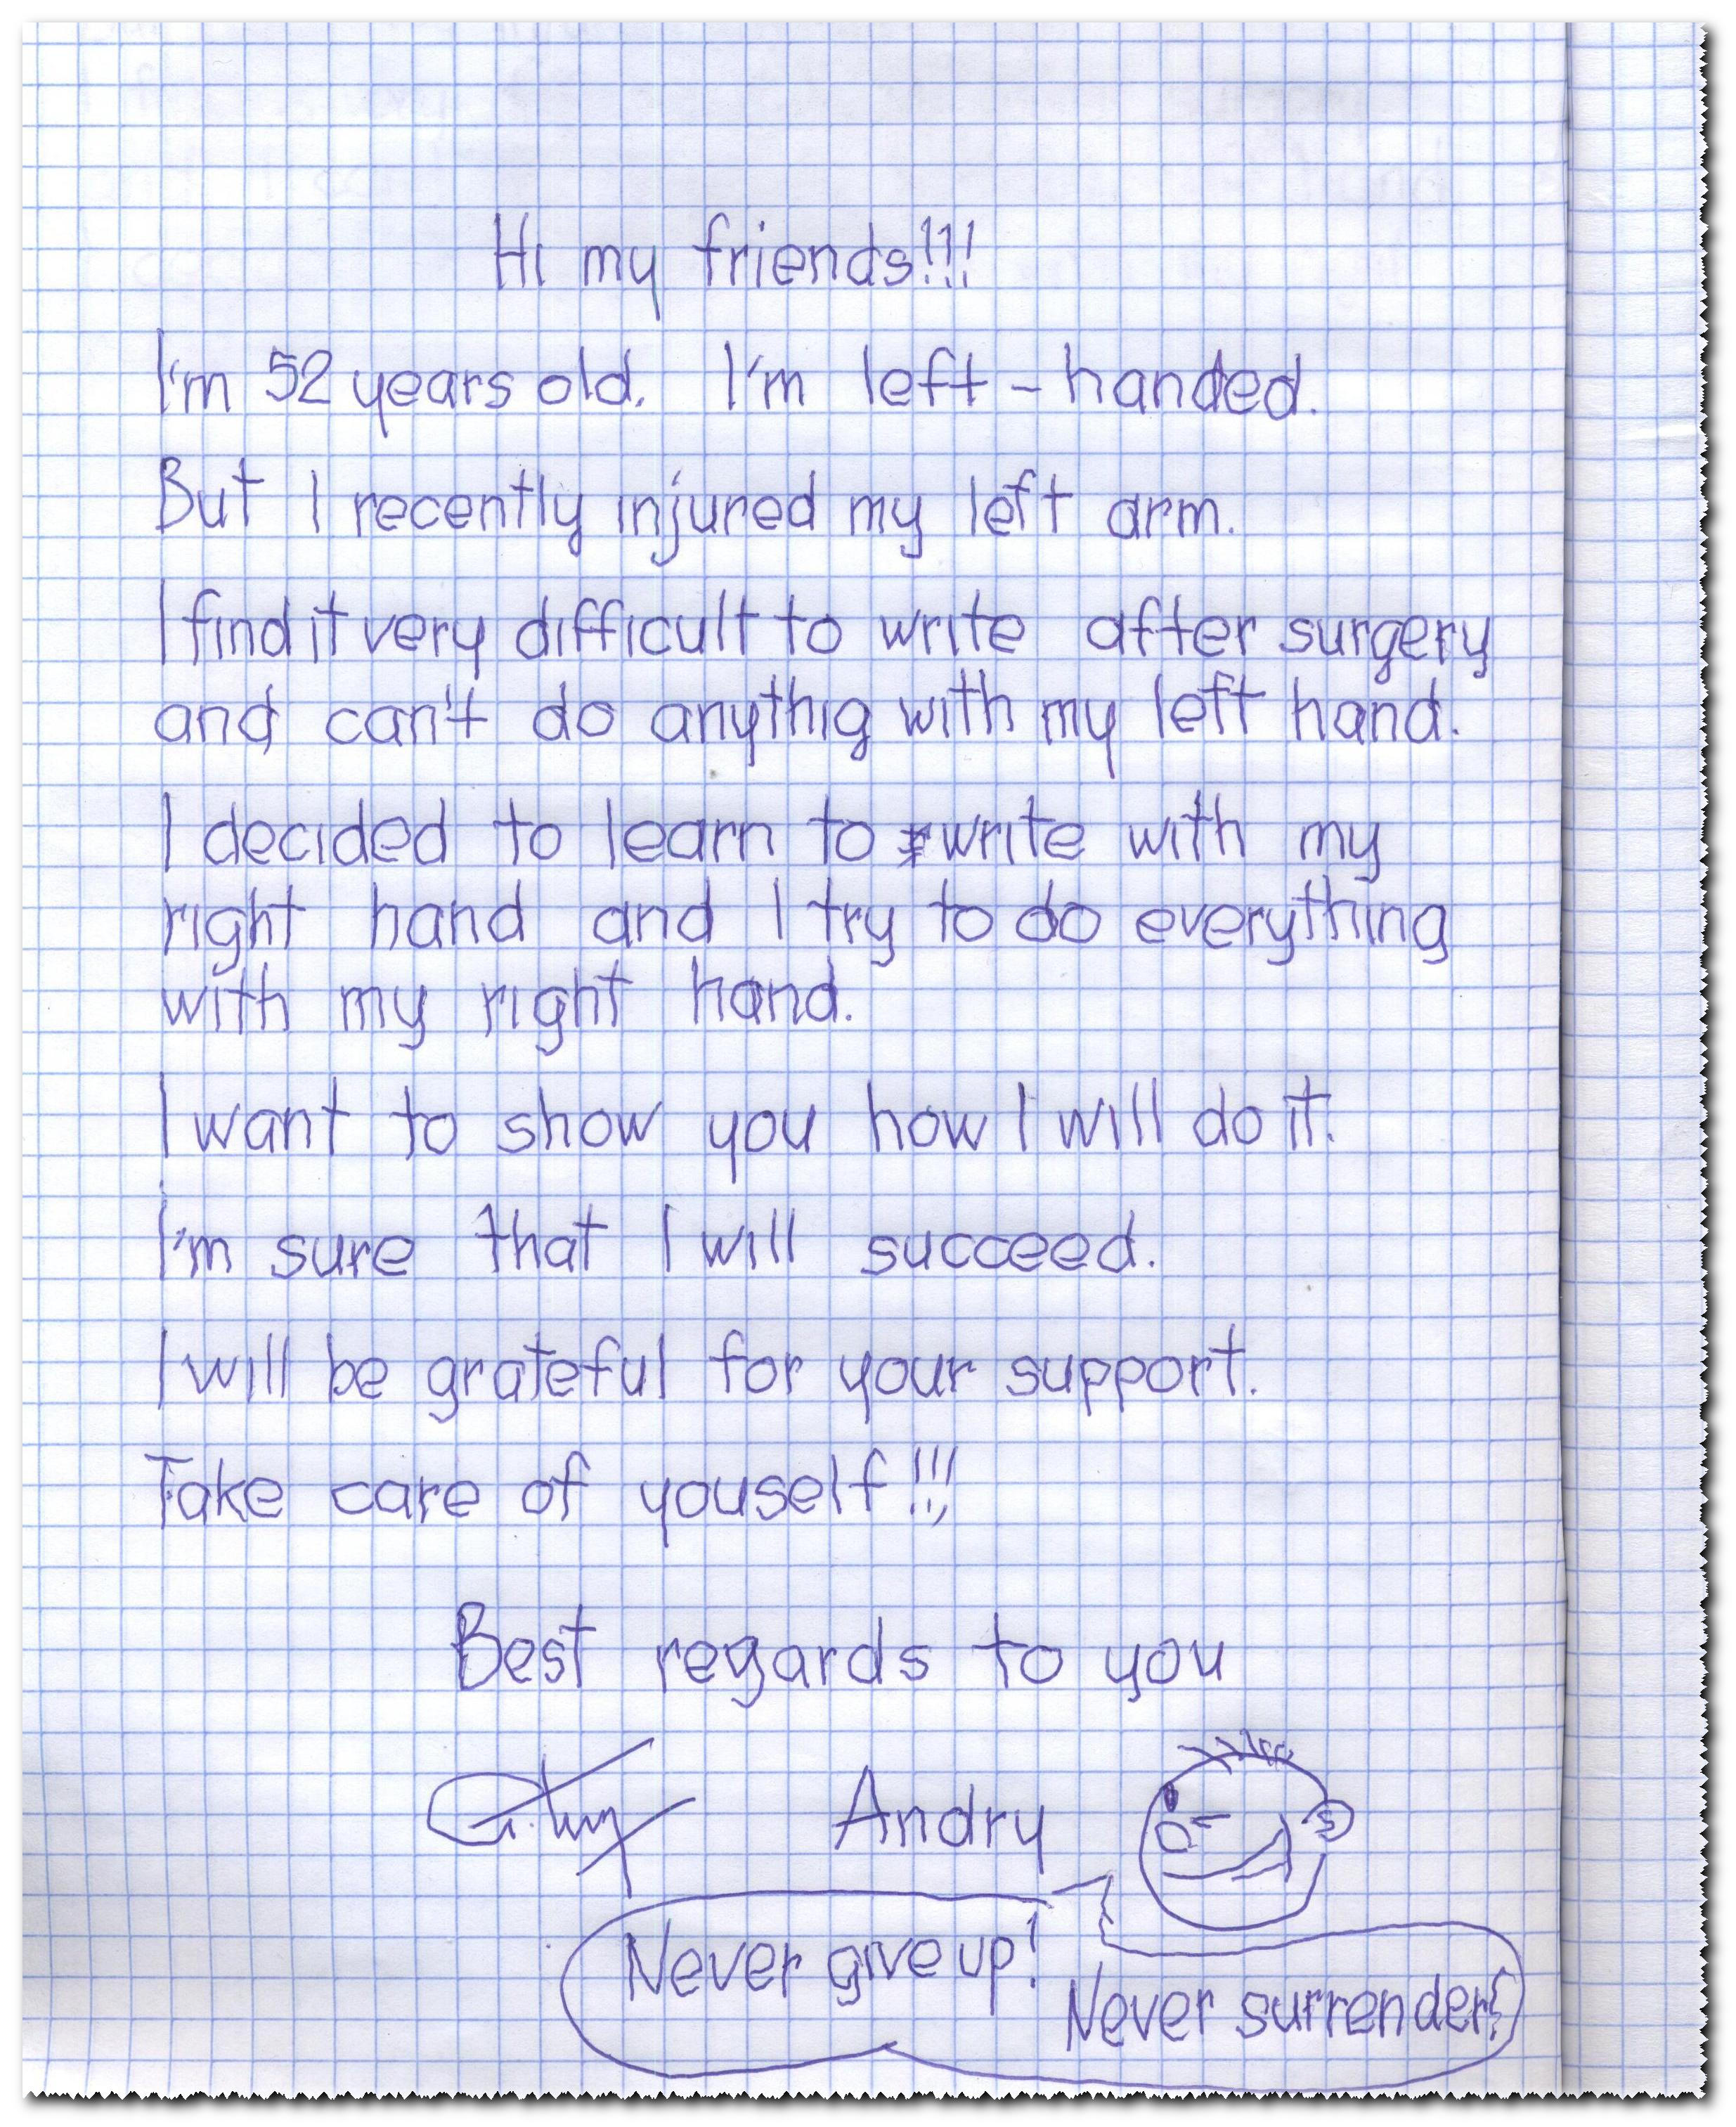 Hi my friends!!!
I'm 52 years old. I'm left-handed.
But I recently injured my left arm.
I find it very difficult to write after surgery
and can't do anythig with my left hand.
I decided to learn to write with my
right hand and I try to do everything
with my right hand.
I want to show you how I will do it.
I'm sure that I will succeed.
I will be grateful for your support.
Take care of youself!!!
Best regards to you
Andry
Never give up!
Never surrender!